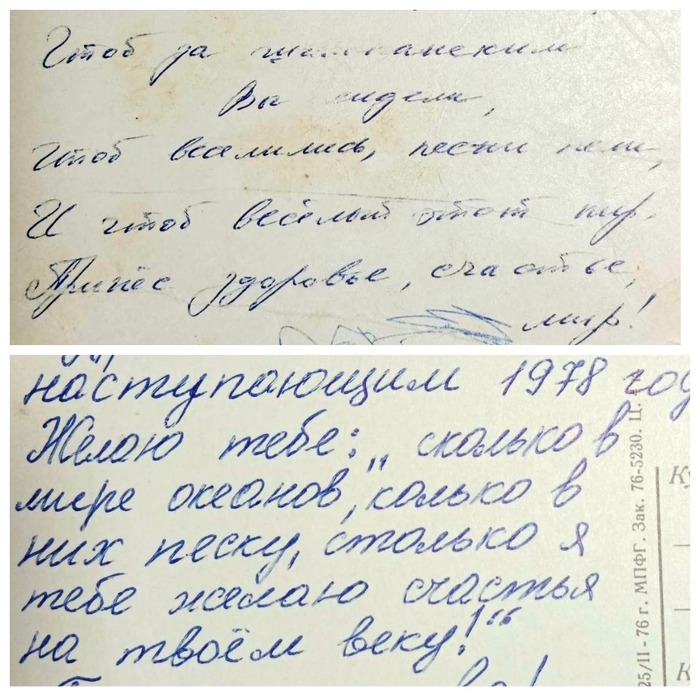 Чтоб за шампанским
Вы сидели,
Чтоб веселились, песни пели,
И чтоб весёлый этот пир.
Принёс здоровье, счастье,
мир!
наступающим 1978 год
Желаю тебе: „сколько в
мире океанов, колько в
них песку, столько я
тебе желаю счастья
на твоём веку!“
25/II-76 г. МПФГ. Зак. 76-5230. Ц.
Ку
К